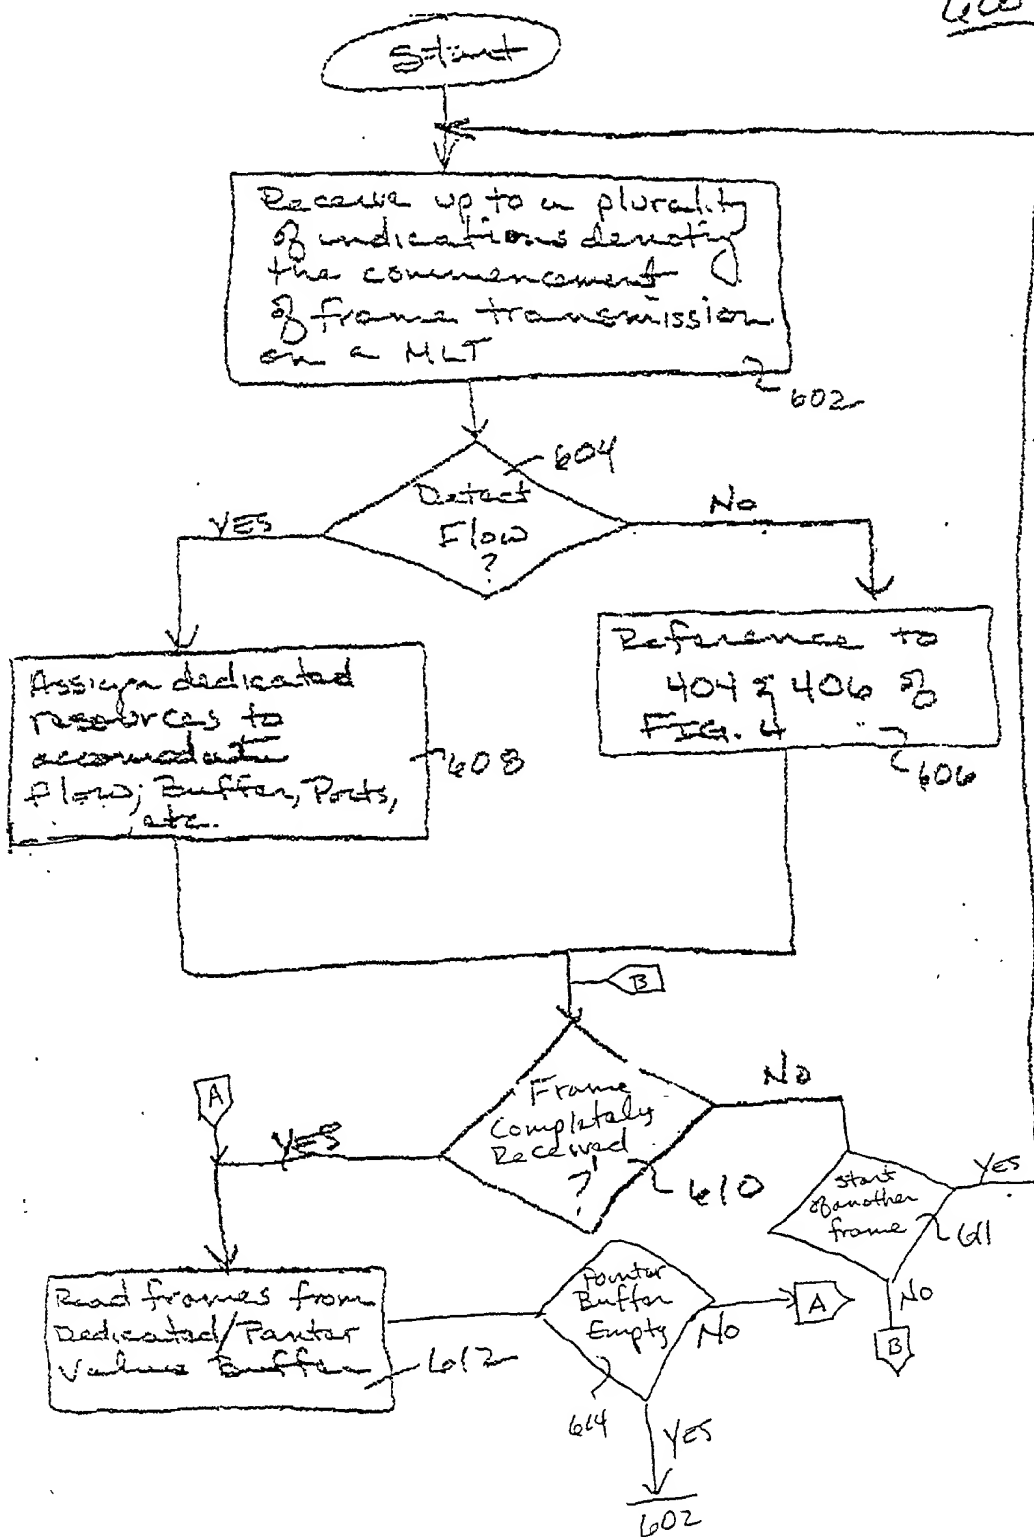 600
Start
Receive up to a plurality
of indications denoting
the commencement
of frame transmission
on a MLT
602
604
Detect
Flow
?
YES
No
Assign dedicated
resources to
accomodate
flow; Buffer, Ports,
etc.
608
Reference to
404 & 406 of
FIG. 4
606
B
A
Frame
Completely
Received
?
610
YES
No
start
of another
frame
611
YES
NO
B
Read frames from
Dedicated/Pointer
Values Buffer
612
Pointer
Buffer
Empty
614
NO
A
YES
602